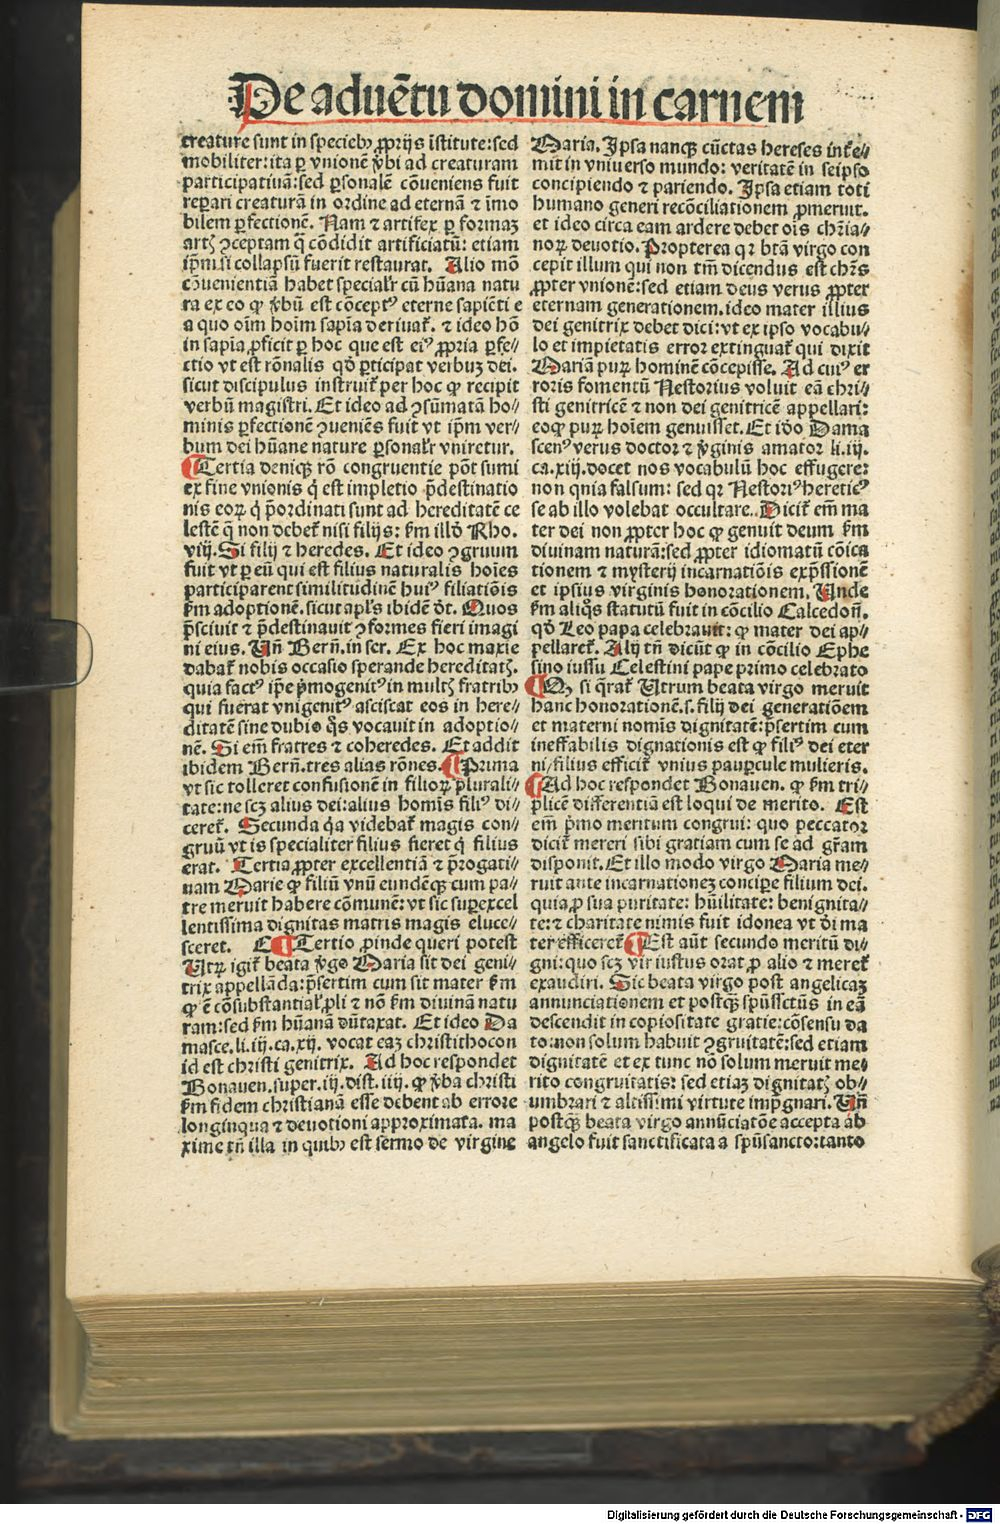 De aduētu domini in carnem
creature sunt in specieb₉ ꝓprijs īstitute: sed
mobiliter: ita ꝑ vnionē v̓bi ad creaturam
participatiuā: sed ꝑsonalē cōueniens fuit
reparari creaturā in ordine ad eternā ⁊ īmo
bilem ꝑfectionē. Nam ⁊ artifex ꝑ formaꝫ
artꝭ ꝯceptam q̄ cōdidit artificiatū: etiam
ip̄m si collapsū fuerit restaurat. Alio mō
cōuenientiā habet specialr̄ cū hūana natu
ra ex eo ꝙ v̓bū est cōceptꝰ eterne sapiēti e
a quo oīm hoīm sapīa deriuat᷑. ⁊ ideo hō
in sapīa ꝓficit ꝑ hoc que est eiꝰ ꝓpria ꝑfe⸗
ctio vt est rōnalis qd̓ ꝑticipat verbuꝫ dei.
sicut discipulus instruit᷑ per hoc ꝙ recipit
verbū magistri. Et ideo ad ꝯsūmatā ho⸗
minis ꝑfectionē ꝯueniēs fuit vt ip̄m ver⸗
bum dei hūane nature ꝑsonalr̄ vniretur.
¶Tertia deniqꝫ rō congruentie pōt sumi
ex fine vnionis q̄ est impletio p̄destinatio
nis eoꝝ q̇ p̄ordinati sunt ad hereditatē ce
lestē q̄ non debet᷑ nisi filijs: ẜm illd̓ Rho.
viij. Si filij ⁊ heredes. Et ideo ꝯgruum
fuit vt ꝑ eū qui est filius naturalis hoīes
participarent similitudinē huiꝰ filiatiōis
ẜm adoptionē. sicut apl̓s ibidē d̓t. Quos
p̄sciuit ⁊ p̄destinauit ꝯformes fieri imagi
ni eius. Vn̄ Bern̄. in ser. Ex hoc maxīe
dabat᷑ nobis occasio sperande hereditatꝭ.
quia factꝰ ip̄e p̓mogenitꝰ in multꝭ fratrib₉
qui fuerat vnigenitꝰ asciscat eos in here⸗
ditatē sine dubio q̊s vocauit in adoptio⸗
nē. Si em̄ fratres ⁊ coheredes. Et addit
ibidem Bern̄. tres alias rōnes. ¶Prima
vt sic tolleret confusionē in filioꝝ plurali⸗
tate: ne scꝫ alius dei: alius homīs filiꝰ di⸗
ceret᷑. Secunda q̇a videbat᷑ magis con⸗
gruū vt is specialiter filius fieret q̇ filius
erat. Tertia ꝓpter excellentiā ⁊ p̄rogati⸗
uam Marie ꝙ filiū vnū eundēqꝫ cum pa⸗
tre meruit habere cōmunē: vt sic suꝑexcel
lentissima dignitas matris magis eluce⸗
sceret. ¶Tertio ꝓinde queri potest
Vtꝝ igit᷑ beata v̓go Maria sit dei geni⸗
trix appellāda: p̄sertim cum sit mater ẜm
ꝙ ē cōsubstantial̓ ꝓli ⁊ nō ẜm diuinā natu
ram: sed ẜm hūanā dūtaxat. Et ideo Da
masce. li. iij. ca. xij. vocat eaꝫ christithocon
id est christi genitrix. Ad hoc respondet
Bonauen. super. iij. dist. iiij. ꝙ v̓ba christi
ẜm fidem christianā esse debent ab errore
longinqua ⁊ deuotioni approximata. ma
xime tn̄ illa in quib₉ est sermo de virgine
Maria. Ipsa nanqꝫ cūctas hereses inte᷑⸗
mit in vniuerso mundo: veritatē in seipso
concipiendo ⁊ pariendo. Ipsa etiam toti
humano generi recōciliationem ꝓmeruit.
et ideo circa eam ardere debet oīs chr̄ia⸗
noꝝ deuotio. Propterea qꝛ btā virgo con
cepit illum qui non tm̄ dicendus est chr̄s
ꝓpter vnionē: sed etiam deus verus ꝓpter
eternam generationem. ideo mater illius
dei genitrix debet dici: vt ex ipso vocabu⸗
lo et impietatis error extinguat᷑ qui dixit
Mariā puꝝ hominē cōcepisse. Ad cuiꝰ er
roris fomentū Nestorius voluit eā chri⸗
sti genitricē ⁊ non dei genitricē appellari:
eoqꝫ puꝝ hoīem genuisset. Et iō Dama
scenꝰ verus doctor ⁊ v̓ginis amator li. iij.
ca. xij. docet nos vocabulū hoc effugere:
non quia falsum: sed qꝛ Nestoriꝰ hereticꝰ
se ab illo volebat occultare. Dicit᷑ em̄ ma
ter dei non ꝓpter hoc ꝙ genuit deum ẜm
diuinam naturā: sed ꝓpter idiomatū cōica
tionem ⁊ mysterij incarnatiōis exp̄ssionē
et ipsius virginis honorationem. Vnde
ẜm aliq̊s statutū fuit in cōcilio Calcedon̄.
qd̓ Leo papa celebrauit: ꝙ mater dei ap⸗
pellaret᷑. Alij tn̄ dicūt ꝙ in cōcilio Ephe
sino iussu Celestini pape primo celebrato
¶Qꝫ si q̄rat᷑ Vtrum beata virgo meruit
hanc honorationē. s. filij dei generatiōem
et materni nomīs dignitatē: p̄sertim cum
ineffabilis dignationis est ꝙ filiꝰ dei eter
ni, filius efficit᷑ vnius pauꝑcule mulieris.
¶Ad hoc respondet Bonauen. ꝙ ẜm tri⸗
plicē differentiā est loqui de merito. Est
em̄ p̓mo meritum congrui: quo peccator
dicit᷑ mereri sibi gratiam cum se ad gr̄am
disponit. Et illo modo virgo Maria me⸗
ruit ante incarnationeꝫ conciꝑe filium dei.
quia ꝓ sua puritate: hūilitate: benignita⸗
te: ⁊ charitate nimis fuit idonea vt d̓i ma
ter efficeret᷑ ¶Est aūt secundo meritū di⸗
gni: quo scꝫ vir iustus orat ꝓ alio ⁊ meret᷑
exaudiri. Sic beata virgo post angelicaꝫ
annunciationem et postqꝫ spūssctūs in eā
descendit in copiositate gratie: cōsensu da
to: non solum habuit ꝯgruitatē: sed etiam
dignitatē et ex tunc nō solum meruit me⸗
rito congruitatis: sed etiaꝫ dignitatꝭ ob⸗
umbrari ⁊ altissimi virtute imp̄gnari. Vn̄
postqꝫ beata virgo annūciatōe accepta ab
angelo fuit sanctificata a spūsancto: tanto
Digitalisierung gefördert durch die Deutsche Forschungsgemeinschaft - DFG